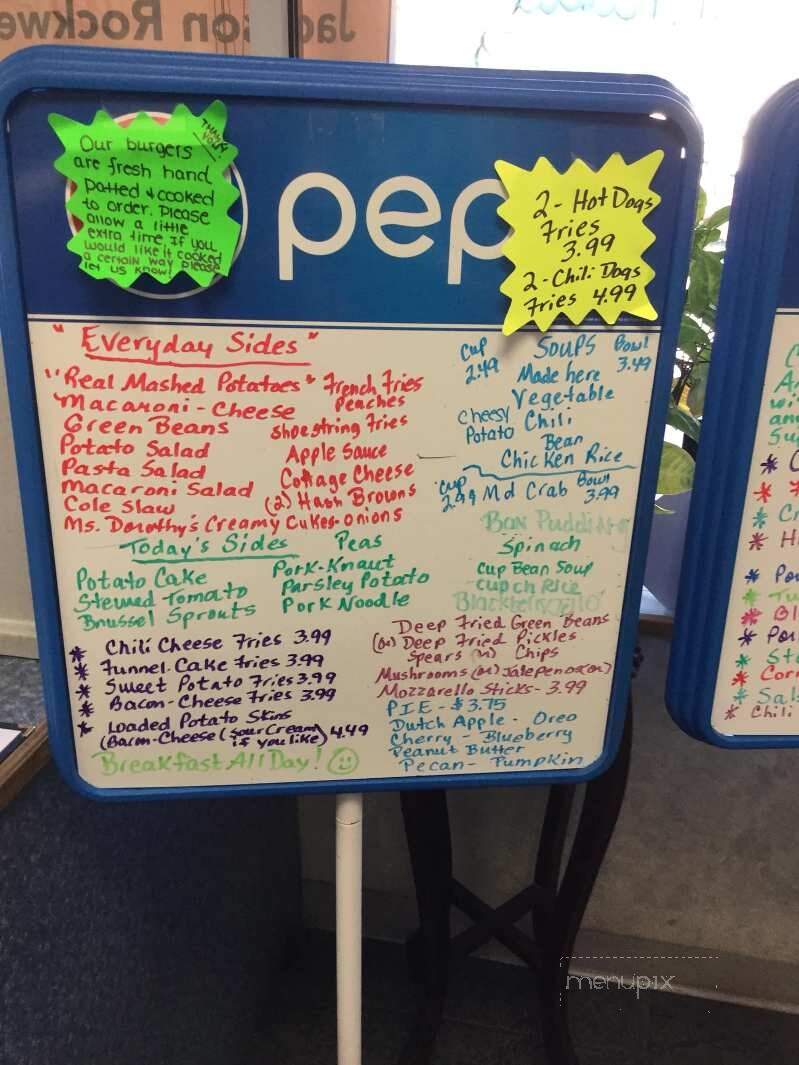 Our burgers
are fresh hand
patted & cooked
to order. Please
allow a little
extra time, if you
would like it cooked
a certain way please
let us know!
THANK
YOU!
pep
2 - Hot Dogs
Fries
3.99
2 - Chili Dogs
Fries 4.99
"Everyday Sides"
"Real Mashed Potatoes" French Fries
Macaroni - Cheese Peaches
Green Beans Shoestring Fries
Potato Salad Apple Sauce
Pasta Salad Cottage Cheese
Macaroni Salad (2) Hash Browns
Cole Slaw
Ms. Dorothy's Creamy Cukes-onions
Today's Sides Peas
Potato Cake Pork-Kraut
Stewed Tomato Parsley Potato
Brussel Sprouts Pork Noodle
* Chili Cheese Fries 3.99
* Funnel Cake Fries 3.99
* Sweet Potato Fries 3.99
* Bacon-Cheese Fries 3.99
* Loaded Potato Skins
(Bacon-Cheese (Sour Cream if you like) 4.49
Breakfast All Day!
Cup SOUPS Bowl
2.49 Made here 3.49
Vegetable
Cheesy Potato Chili
Bean
Chicken Rice
Cup 2.99 Md Crab Bowl 3.99
Spinach
Cup Bean Soup
Cup Ch Rice
Deep Fried Green Beans
(or) Deep Fried Pickles
Spears (or) Chips
Mushrooms (or) Jalepenos (or)
Mozzarello Sticks - 3.99
PIE - $3.75
Dutch Apple - Oreo
Cherry - Blueberry
Peanut Butter
Pecan - Pumpkin
menupix